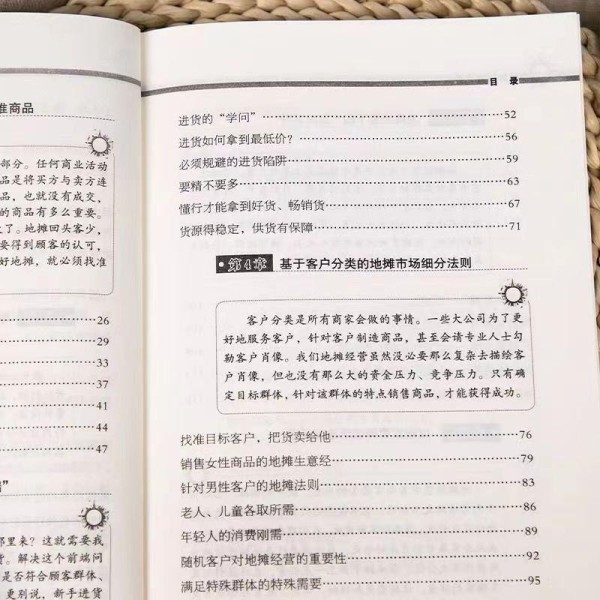 准商品
部分。任何商业活动
品是将买方与卖方连
品，也就没有成交，
的商品有多么重要。
大了。地摊回头客少，
要得到顾客的认可，
好地摊，就必须找准
26
29
33
37
41
44
47
那里来？这就需要我
货。解决这个前端问
是否符合顾客群体、
更别说，新手进货
目 录
进货的“学问” 52
进货如何拿到最低价？ 56
必须规避的进货陷阱 59
要精不要多 63
懂行才能拿到好货、畅销货 67
货源得稳定，供货有保障 71
第4章 基于客户分类的地摊市场细分法则
客户分类是所有商家会做的事情。一些大公司为了更
好地服务客户，针对客户制造商品，甚至会请专业人士勾
勒客户肖像。我们地摊经营虽然没必要那么复杂去描绘客
户肖像，但也没有那么大的资金压力、竞争压力。只有确
定目标群体，针对该群体的特点销售商品，才能获得成功。
找准目标客户，把货卖给他 76
销售女性商品的地摊生意经 79
针对男性客户的地摊法则 83
老人、儿童各取所需 86
年轻人的消费刚需 89
随机客户对地摊经营的重要性 92
满足特殊群体的特殊需要 95